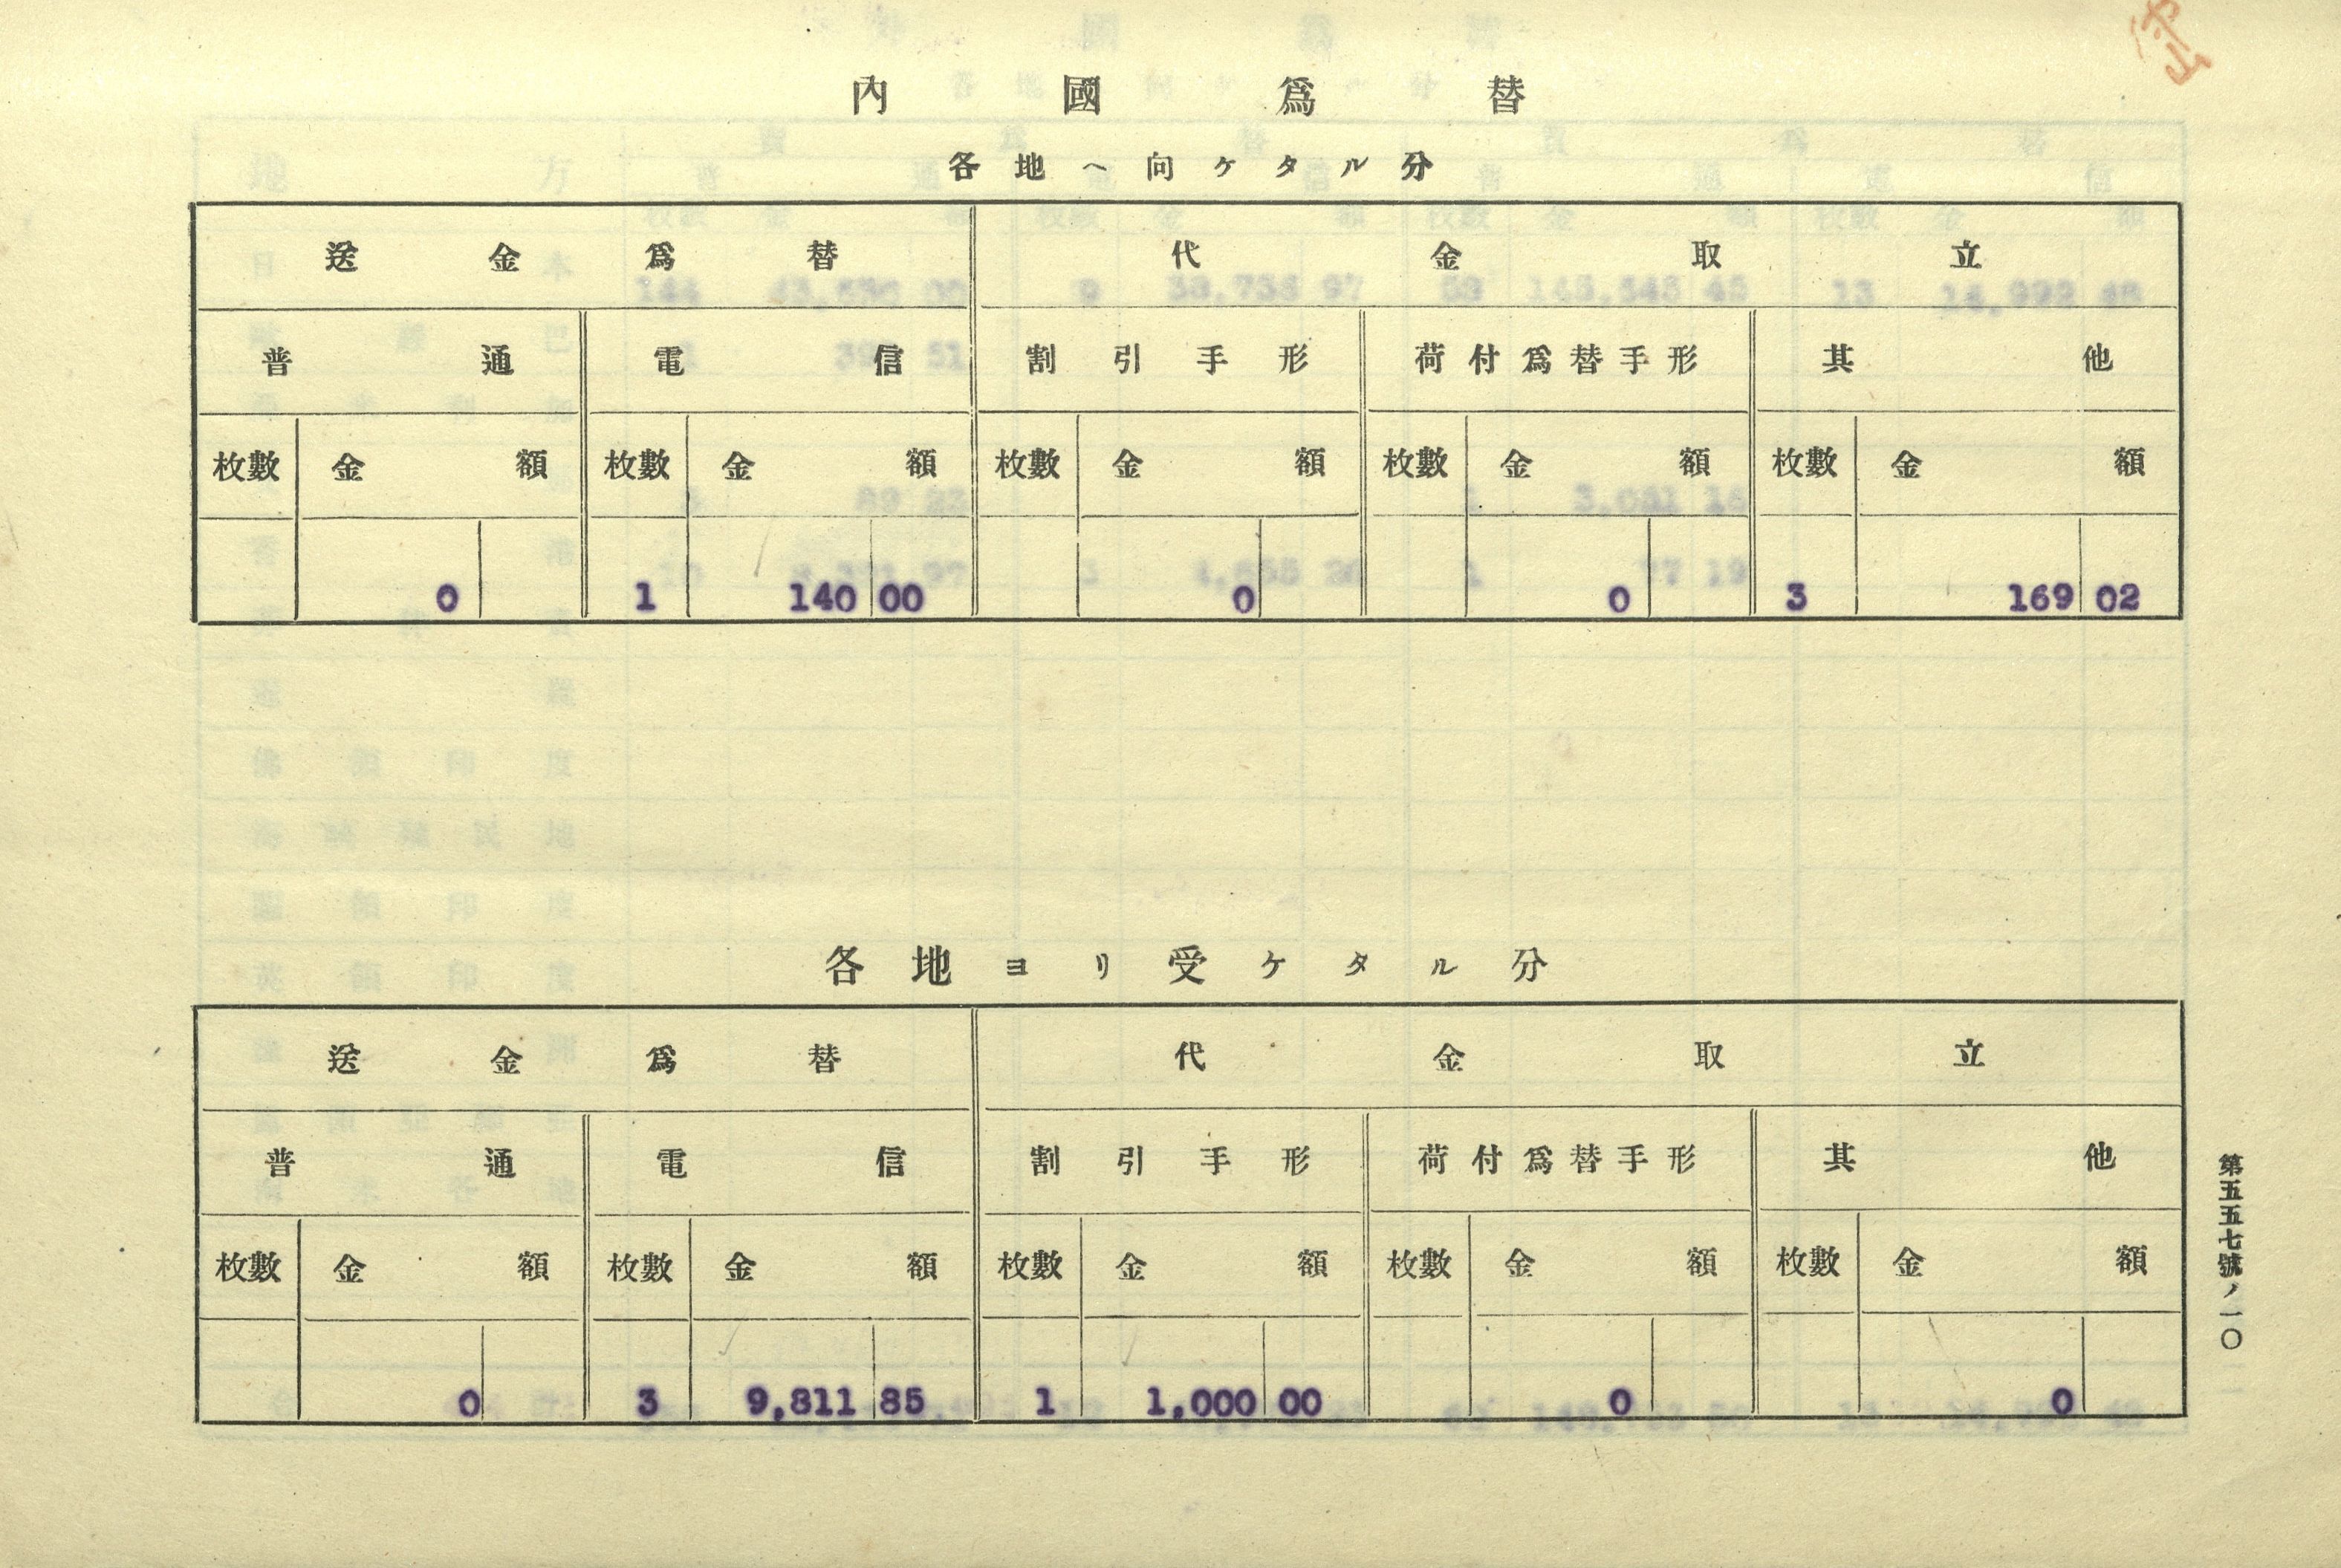 內國爲替
各地ヘ向ケタル分
送金爲替 代金取立
普通 電信 割引手形 荷付爲替手形 其他
枚數 金額 枚數 金額 枚數 金額 枚數 金額 枚數 金額
0 1 140 00 0 0 3 169 02
各地ヨリ受ケタル分
送金爲替 代金取立
普通 電信 割引手形 荷付爲替手形 其他
枚數 金額 枚數 金額 枚數 金額 枚數 金額 枚數 金額
0 3 9,811 85 1 1,000 00 0 0
第五五七號ノ一〇